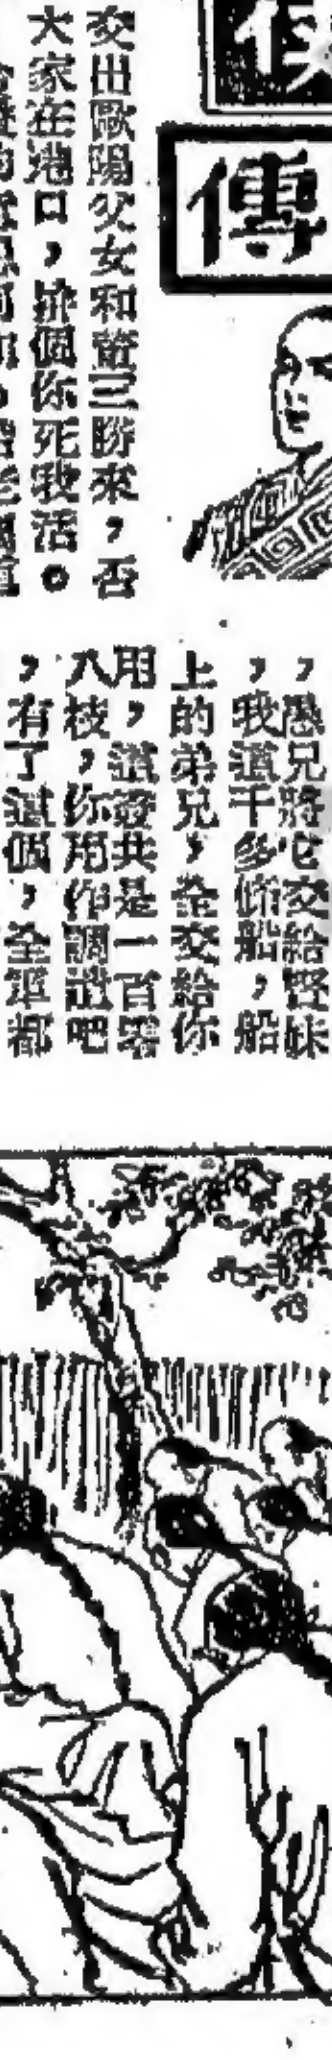 俠
傳
交出歐陽父女和董三勝來，否
大家在港口，拚個你死我活。
，愚兄將它交給賢妹
，我這千多條船，船
上的弟兄，全交給你
用，這簽共是一百零
八枝，你用作調遣吧
，有了這個，全軍都